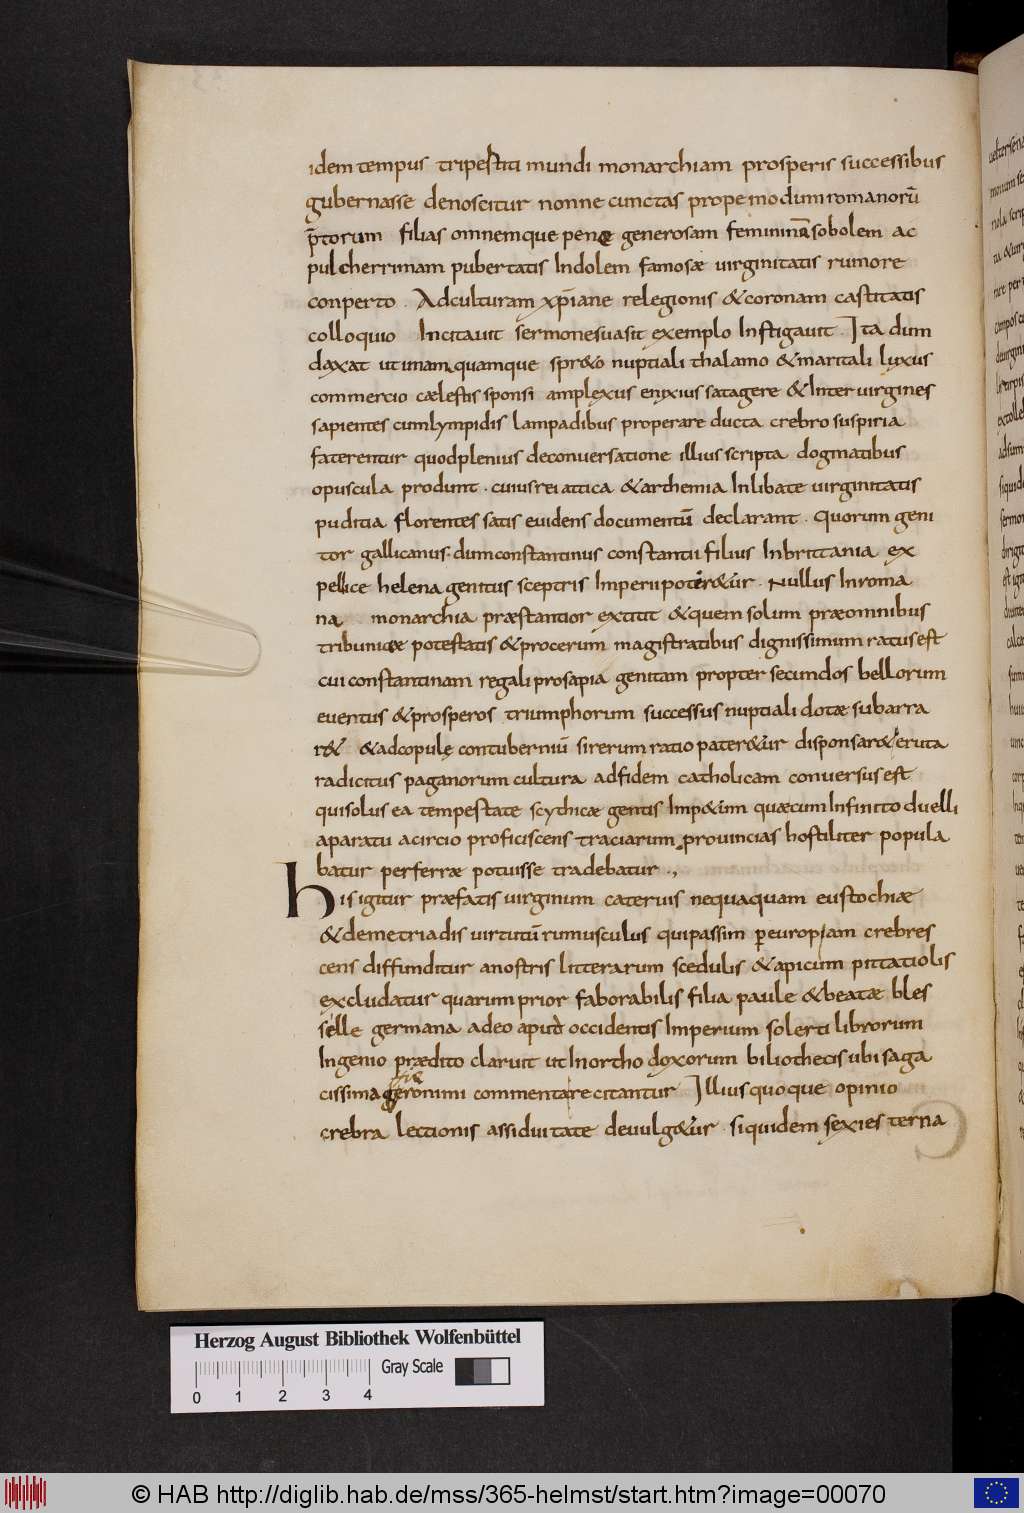 idem tempus tripestiti mundi monarchiam prosperis successibus
gubernasse denoscitur nonne cunctas prope modum romanorū
p̄torum filias omnemque pene generosam femininā sobolem ac
pulcherrimam pubertatis Indolem famosæ uirginitatis rumore
conperto . Adculturam xp̄iane relegionis &coronam castitatis
colloquio Incitauit sermonesuasit exemplo Instigauit . Ita dum
daxat ut unam quamque spr&o nuptiali thalamo &maritali luxus
commercio cælestis sponsi amplexus enixius satagere &Inter uirgines
sapientes cumlympidis lampadibus properare ducta crebro suspiria
faterentur quodplenius deconuersatione illius scripta dogmatibus
opuscula produnt . cuiusrei attica &arthemia Inlibate uirginitatis
puditia florentes satis euidens documentū declarant . Quorum geni
tor gallicanus: dumconstantinus constantii filius Inbrittania ex
pellice helena genitus sceptris Imperii poter&ur . Nullus Inroma
na monarchia præstantior extitit &quem solum præomnibus
tribunicæ potestatis &procerum magistratibus dignissimum ratus est
cui constantinam regali prosapia genitam propter secundos bellorum
euentus &prosperos triumphorum successus nuptiali dotæ subarra
r& &adcopule contuberniū sirerum ratio pater&ur disponsar& eruta
radicitus paganorum cultura adfidem catholicam conuersus est
quisolus ea tempestate scythicæ gentis Imp&um quæcum Infinito duelli
aparatu acircio proficiscens traciarum prouincias hostiliter popula
batur perferræ potuisse tradebatur .,
His igitur præfatis uirginum cateruis nequaquam eustochiæ
&demetriadis uirtutū rumusculus quipassim p europiam crebres
cens diffunditur anostris litterarum scedulis &apicum pittatiolis
excludatur quarum prior faborabilis filia paule &beatæ bles
selle germana adeo apud occidentis Imperium solerti librorum
Ingenio prædito claruit ut Inortho doxorum biliothecis ubi saga
cissima geronimi commentare citantur Illius quoque opinio
crebra lectionis assiduitate deuulg&ur . siquidem sexies terna
Herzog August Bibliothek Wolfenbüttel
Gray Scale
0 1 2 3 4
© HAB http://diglib.hab.de/mss/365-helmst/start.htm?image=00070